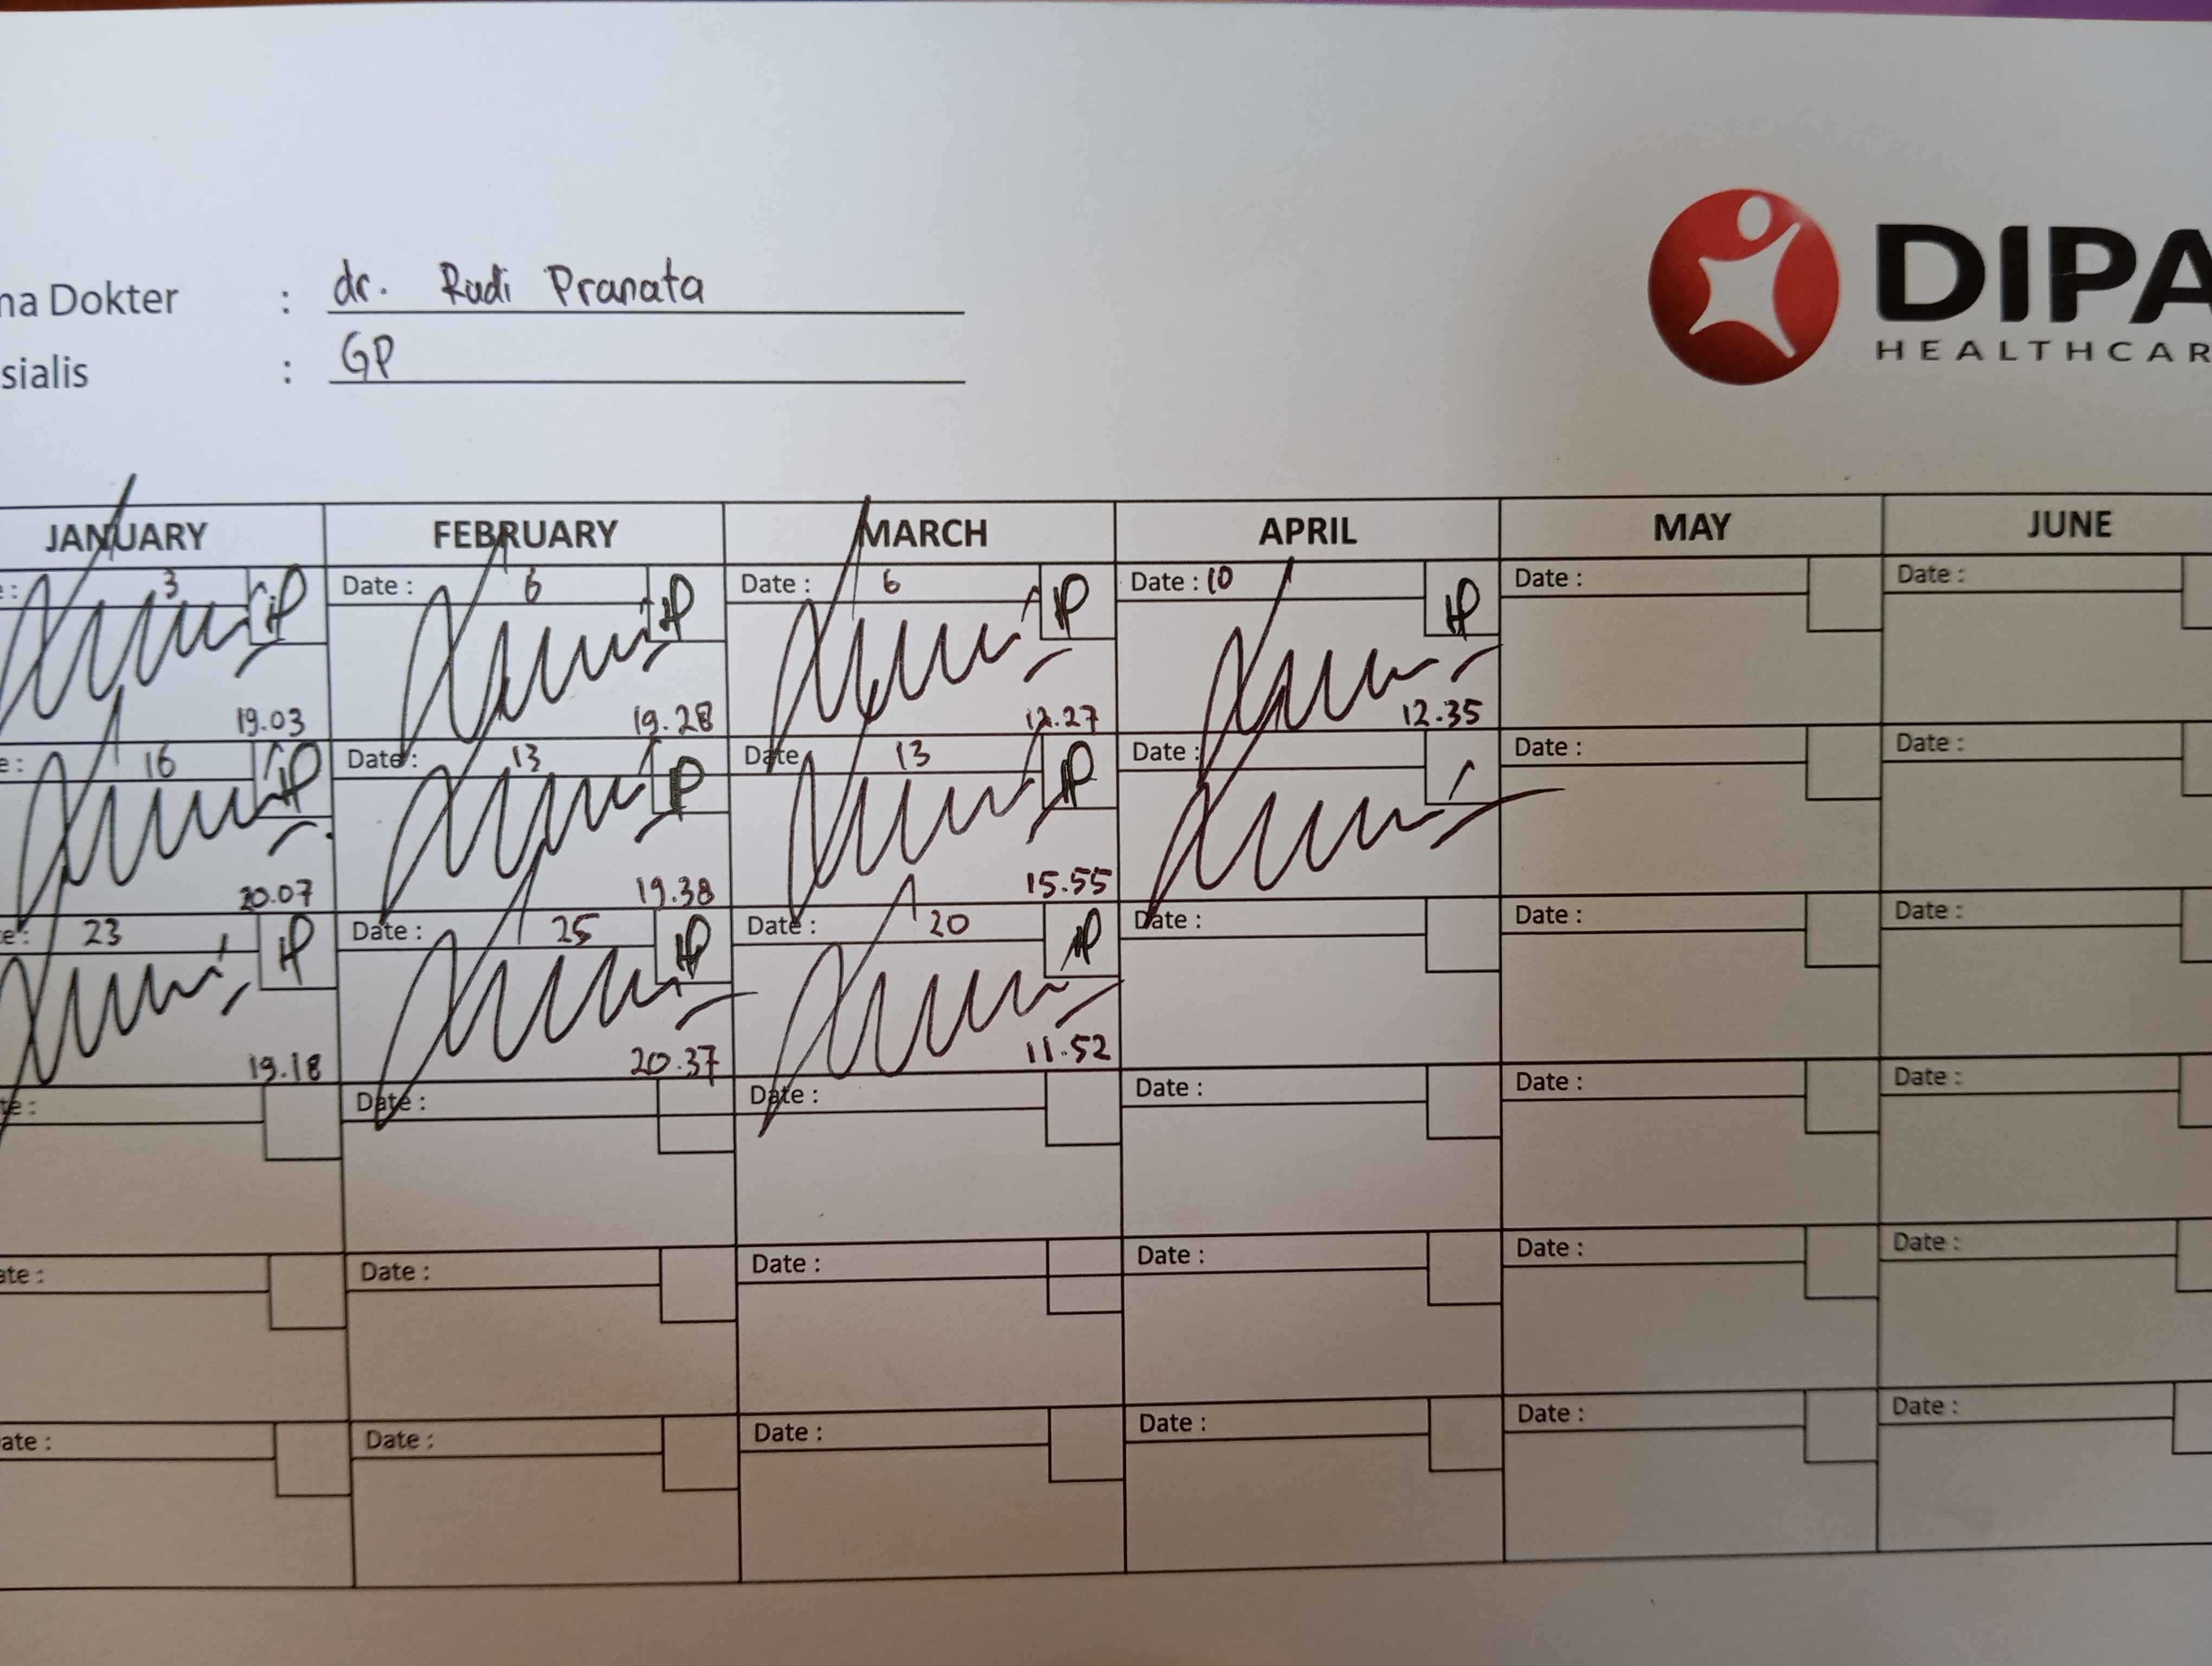 na Dokter : dr. Rudi Pranata
sialis : GP
DIPA
HEALTHCAR
JANUARY FEBRUARY MARCH APRIL MAY JUNE
e: 3 Date : 6 Date : 6 Date : 10 Date : Date :
19.03 19.28 12.27 12.35
e: 16 Date : 13 Date 13 Date : Date : Date :
20.07 19.38 15.55
te: 23 Date : 25 Date : 20 Date : Date : Date :
19.18 20.37 11.52
te: Date : Date : Date : Date : Date :
ate : Date : Date : Date : Date : Date :
ate : Date : Date : Date : Date : Date :